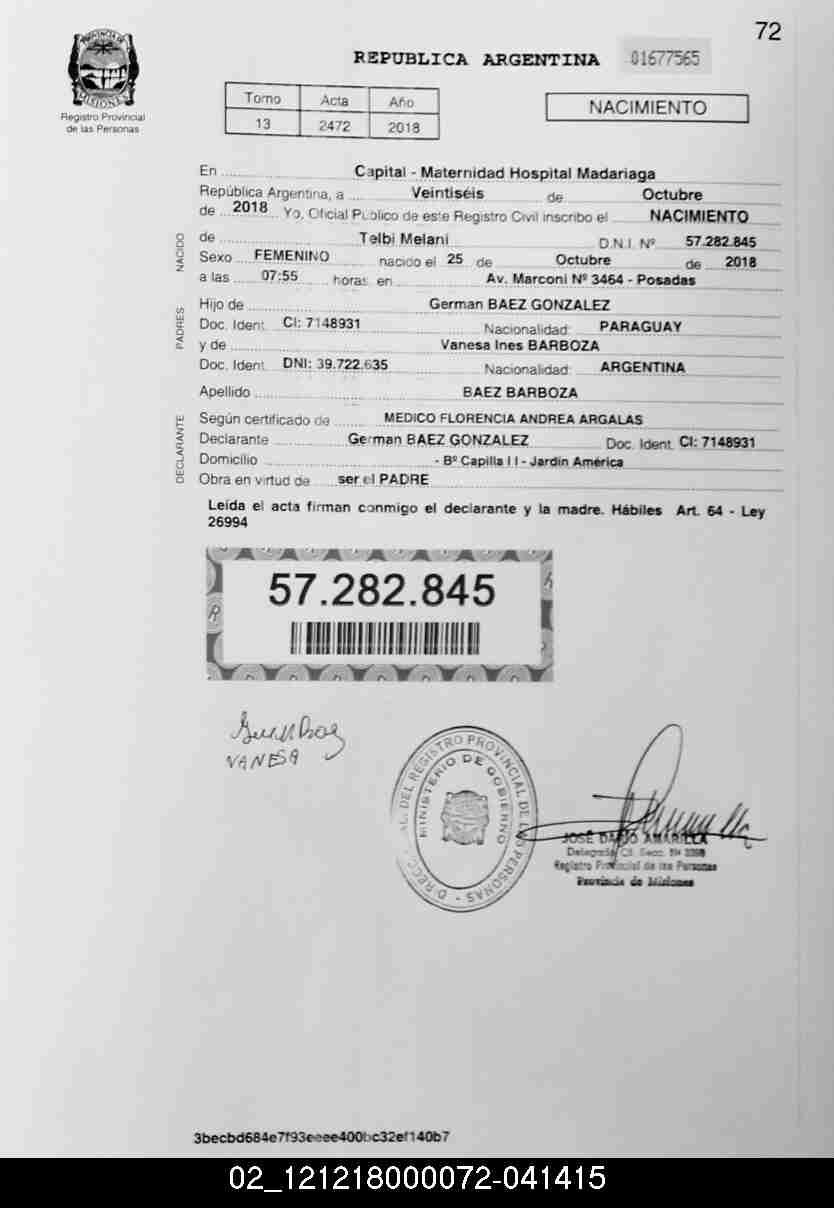 72
PROVINCIA DE
MISIONES
Registro Provincial
de las Personas
REPUBLICA ARGENTINA 01677565
Tomo Acta Año
13 2472 2018
NACIMIENTO
En Capital - Maternidad Hospital Madariaga
República Argentina, a Veintiséis de Octubre
de 2018 Yo, Oficial Público de este Registro Civil inscribo el NACIMIENTO
NACIDO
de Telbi Melani D.N.I. Nº 57.282.845
Sexo FEMENINO nacido el 25 de Octubre de 2018
a las 07:55 horas en Av. Marconi Nº 3464 - Posadas
PADRES
Hijo de German BAEZ GONZALEZ
Doc. Ident. CI: 7148931 Nacionalidad: PARAGUAY
y de Vanesa Ines BARBOZA
Doc. Ident. DNI: 39.722.635 Nacionalidad: ARGENTINA
Apellido BAEZ BARBOZA
DECLARANTE
Según certificado de MEDICO FLORENCIA ANDREA ARGALAS
Declarante German BAEZ GONZALEZ Doc. Ident. CI: 7148931
Domicilio - Bº Capilla I I - Jardín América
Obra en virtud de ser el PADRE
Leída el acta firman conmigo el declarante y la madre. Hábiles Art. 64 - Ley
26994
57.282.845
VANESA
DEL REGISTRO PROVINCIAL DE LAS PERSONAS
MINISTERIO DE GOBIERNO
JOSE DARIO AMARILLA
Registro Provincial de las Personas
Provincia de Misiones
3becbd684e7f93eeee400bc32ef140b7
02_121218000072-041415